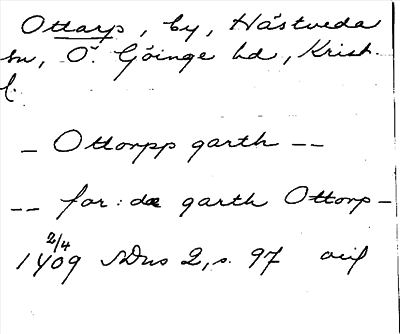 Ottarp, by, Hästveda
sn, Ö. Göinge hd, Krist.
l.
– Ottorpp garth --
-- for:da garth Ottorp –
2/4
1409 SDns 2, s. 97 avs